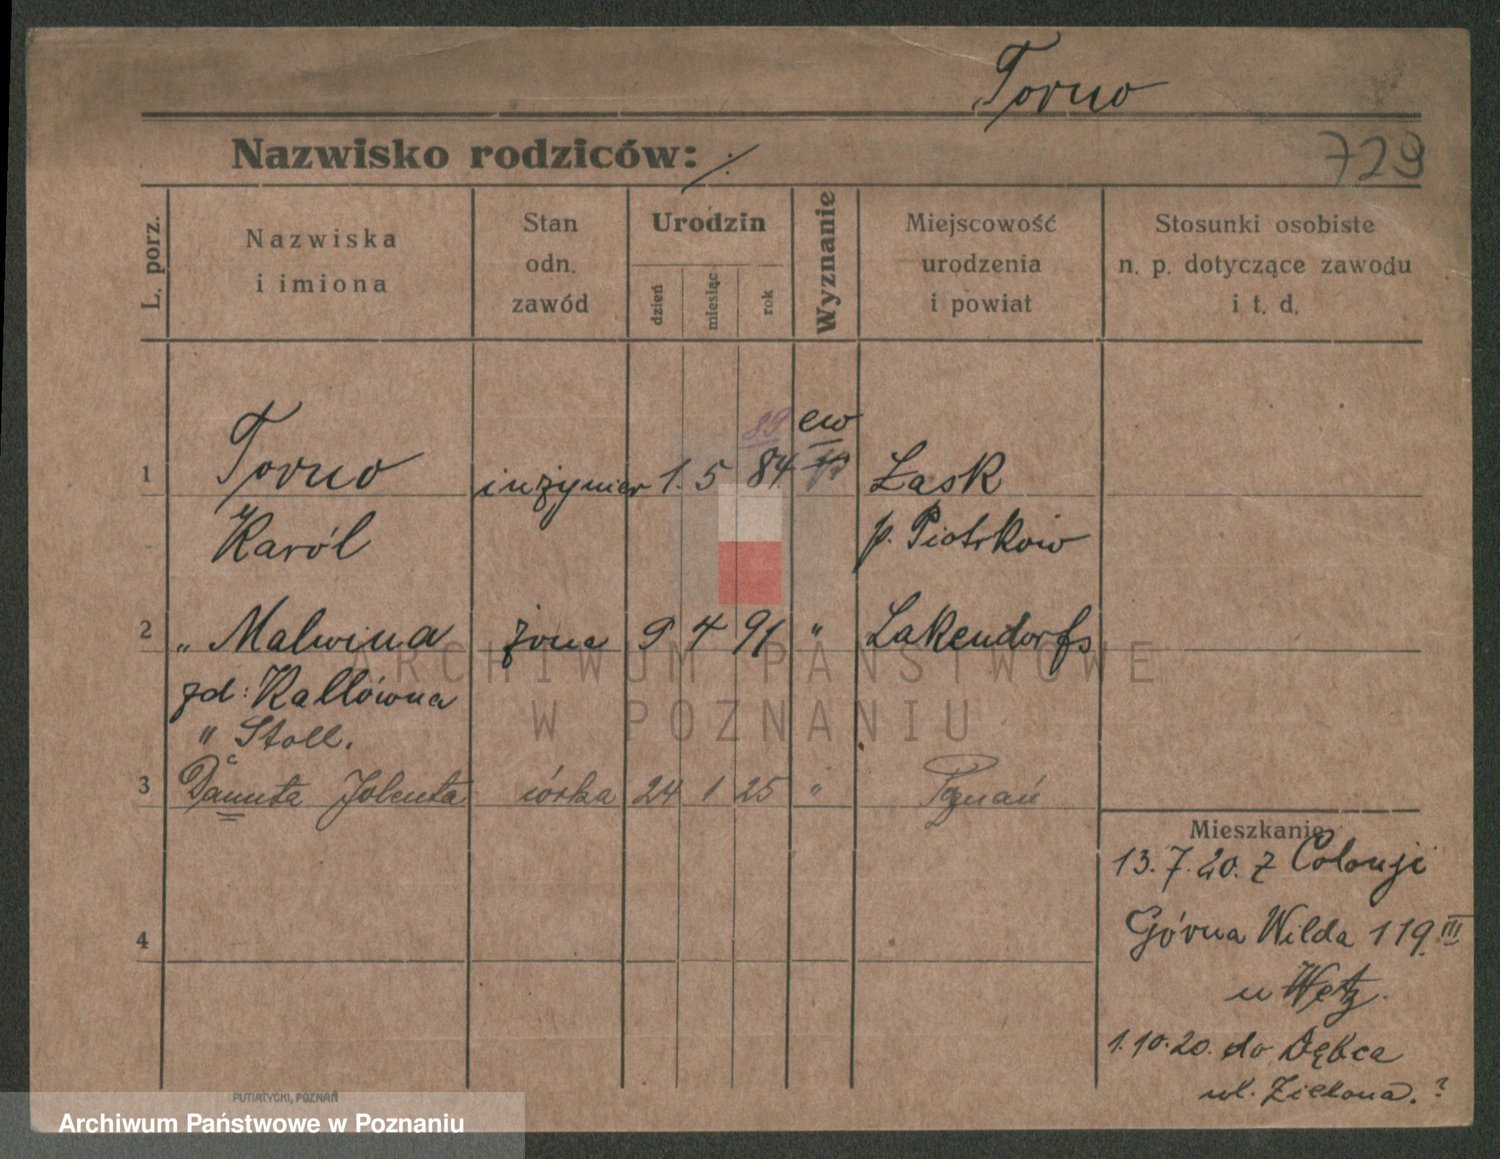 Torno
Nazwisko rodziców: ./.
729
L. porz.
Nazwiska
i imiona
Stan
odn.
zawód
Urodzin
dzień
miesiąc
rok
Wyznanie
Miejscowość
urodzenia
i powiat
Stosunki osobiste
n. p. dotyczące zawodu
i t. d.
89 ew
1 Torno inżynier 1. 5 84 Łask
Karól p. Piotrków
2 " Malwina żona 9 4 91 " Lakendorfs
zd: Kallówna
" Stoll.
3 Danuta Jolenta córka 24 1 25 " Poznań
Mieszkanie
13.7.20. z Colonji
4
Górna Wilda 119 III
u Wętz.
1.10.20. do Dębca
ul. Zielona.?
PUTIATYCKI, POZNAŃ
ARCHIWUM PAŃSTWOWE
W POZNANIU
Archiwum Państwowe w Poznaniu